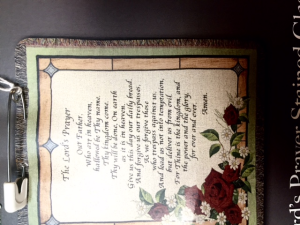 The Lord's Prayer
Our Father,
who art in heaven,
hallowed be Thy name.
Thy kingdom come.
Thy will be done, On earth
as it is in heaven,
Give us this day our daily bread.
And forgive us our trespasses,
As we forgive those
who trespass against us,
And lead us not into temptation,
but deliver us from evil.
For Thine is the kingdom, and
the power and the glory,
for ever and ever.
Amen.